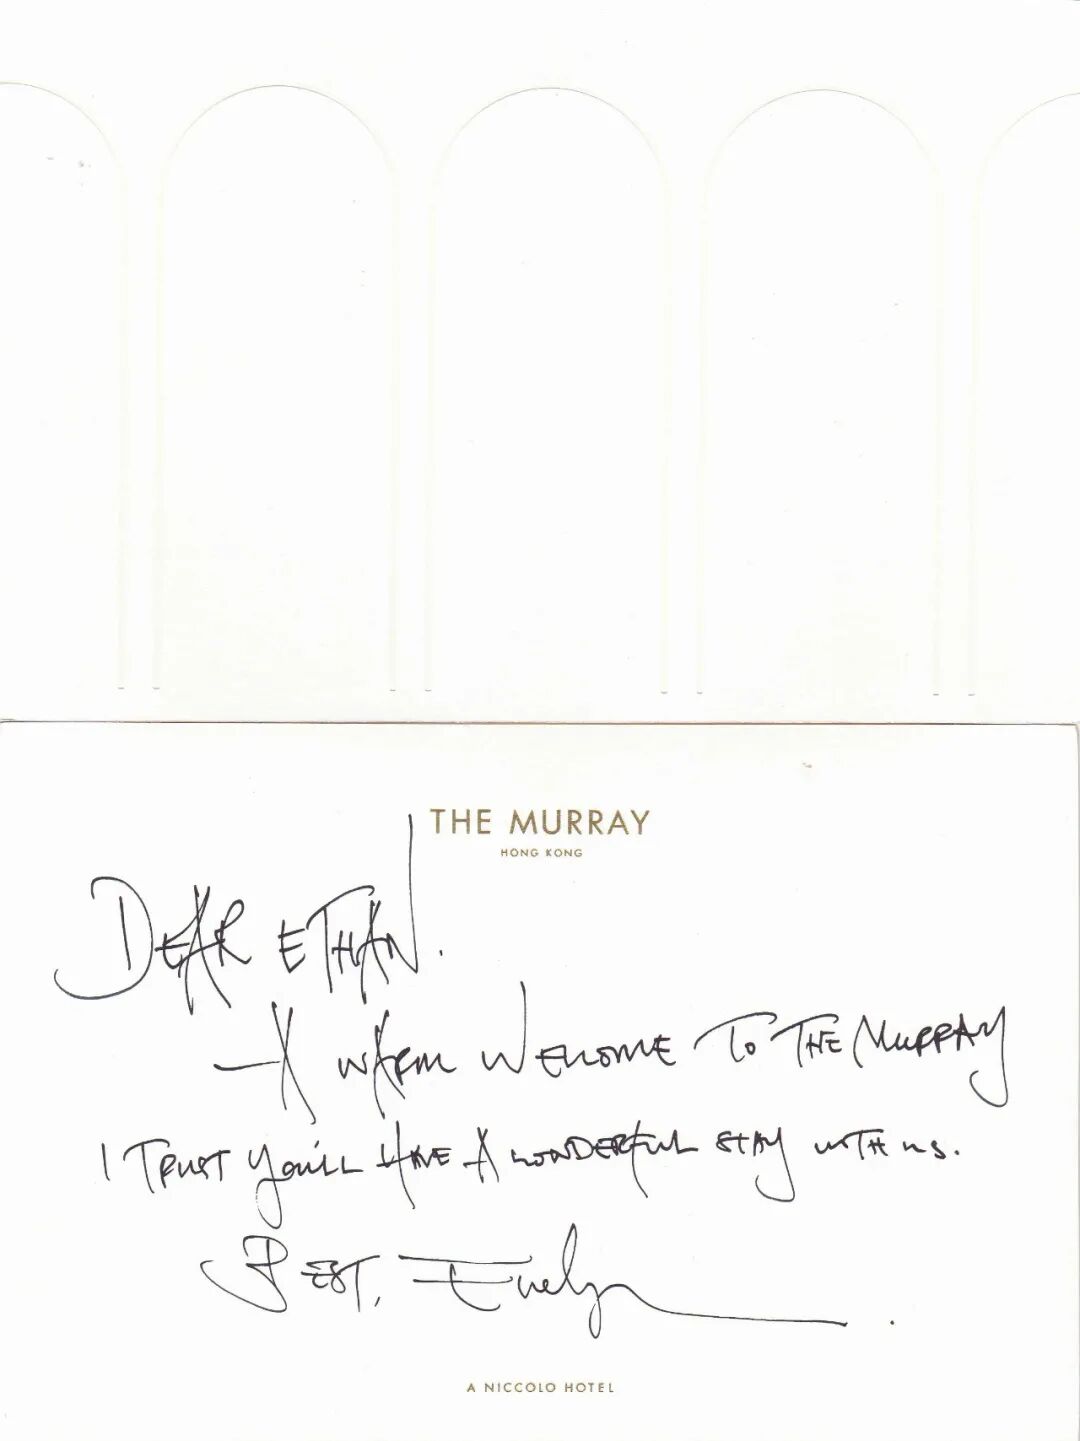 THE MURRAY
HONG KONG
DEAR ETHAN.
A WARM WELCOME TO THE MURRAY
I TRUST YOU'LL HAVE A WONDERFUL STAY WITH US.
BEST, Evelyn
A NICCOLO HOTEL